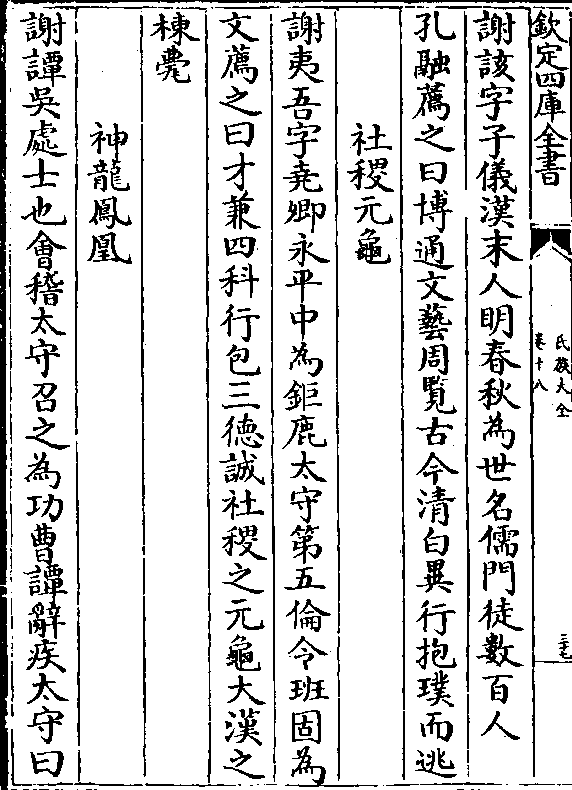 欽定四庫全書
氏族大全
卷十八
三七
謝該字子儀漢末人明春秋為世名儒門徒數百人
孔融薦之曰博通文藝周覽古今清白異行抱璞而逃
社稷元龜
謝夷吾字堯卿永平中為鉅鹿太守第五倫令班固為
文薦之曰才兼四科行包三德誠社稷之元龜大漢之
棟甍
神龍鳳凰
謝譚吳處士也會稽太守召之為功曹譚辭疾太守曰